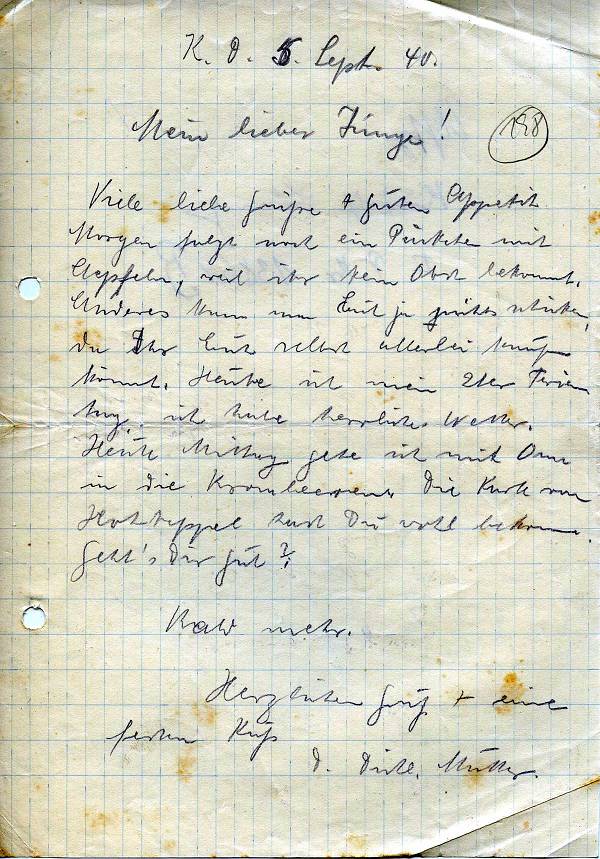 K. D. 5. Sept. 40.
Mein lieber Junge!
198
Viele liebe Grüße + guten Appetit
Morgen folgt noch ein Päckchen mit
Aepfeln, weil ihr kein Obst bekommt.
Anderes kann man Euch ja nichts schicken,
da Ihr Euch selbst allerlei kaufen
könnt. Heute ist mein 2ter Ferien
tag, ich habe herrliches Wetter.
Heute Mittag gehe ich mit Oma
in die Krombeeren. Die Karte von
hast Du wohl bekommen.
Geht's Dir gut?
Bald mehr.
Herzlichen Gruß + eine
festen Kuß
D. Mutter.